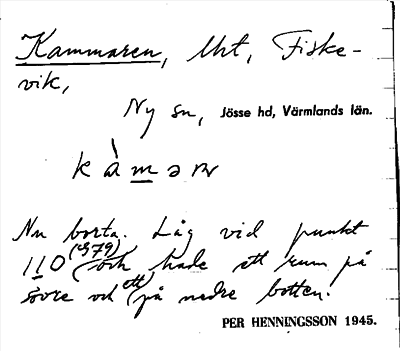 Kammaren, Uht, Fiske-
vik,
Ny sn, Jösse hd, Värmlands län.
kàmaɹ
Nu borta. Låg vid punkt
110 (S79) och hade ett rum på
övre och ett på nedre botten.
PER HENNINGSSON 1945.